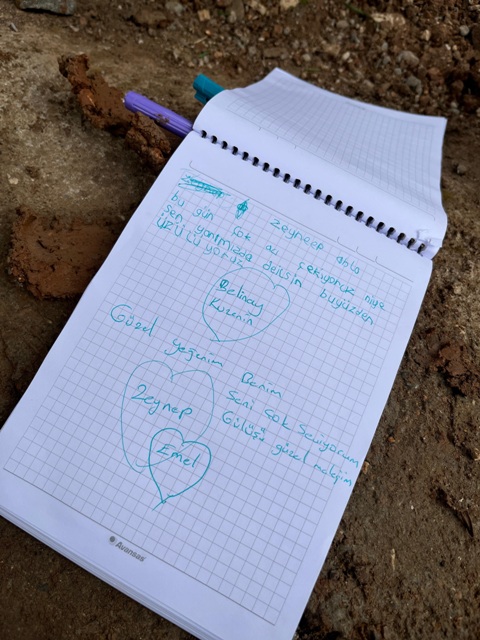 Zeynep abla
bu gün çok acı çekiyoruk niye
sen yanımızda deilsin buyüzden
üzülüyoruz
Belinay
Kuzenin
Güzel yeğenim Benim
Seni çok Seviyorum
Gülüşü güzel meleğim
Zeynep
Emel
Avansas